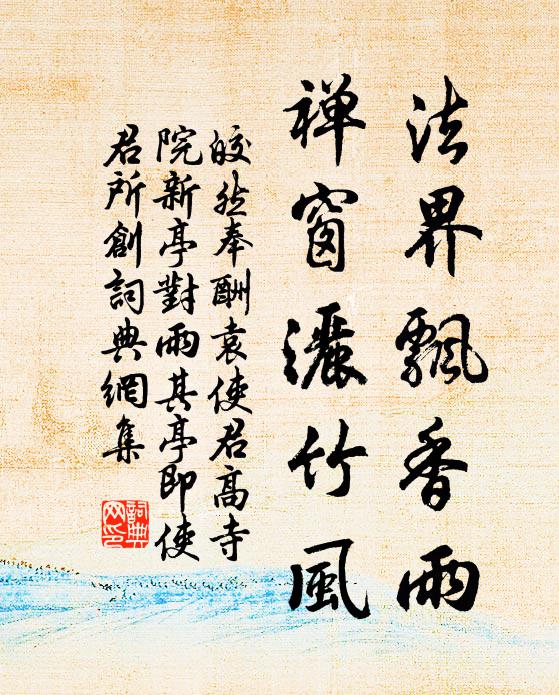 法界飄香雨
禅窗灑竹風
皎然奉酬袁使君高寺
院新亭對雨其亭即使
君所創詞典網集
詞典
网印